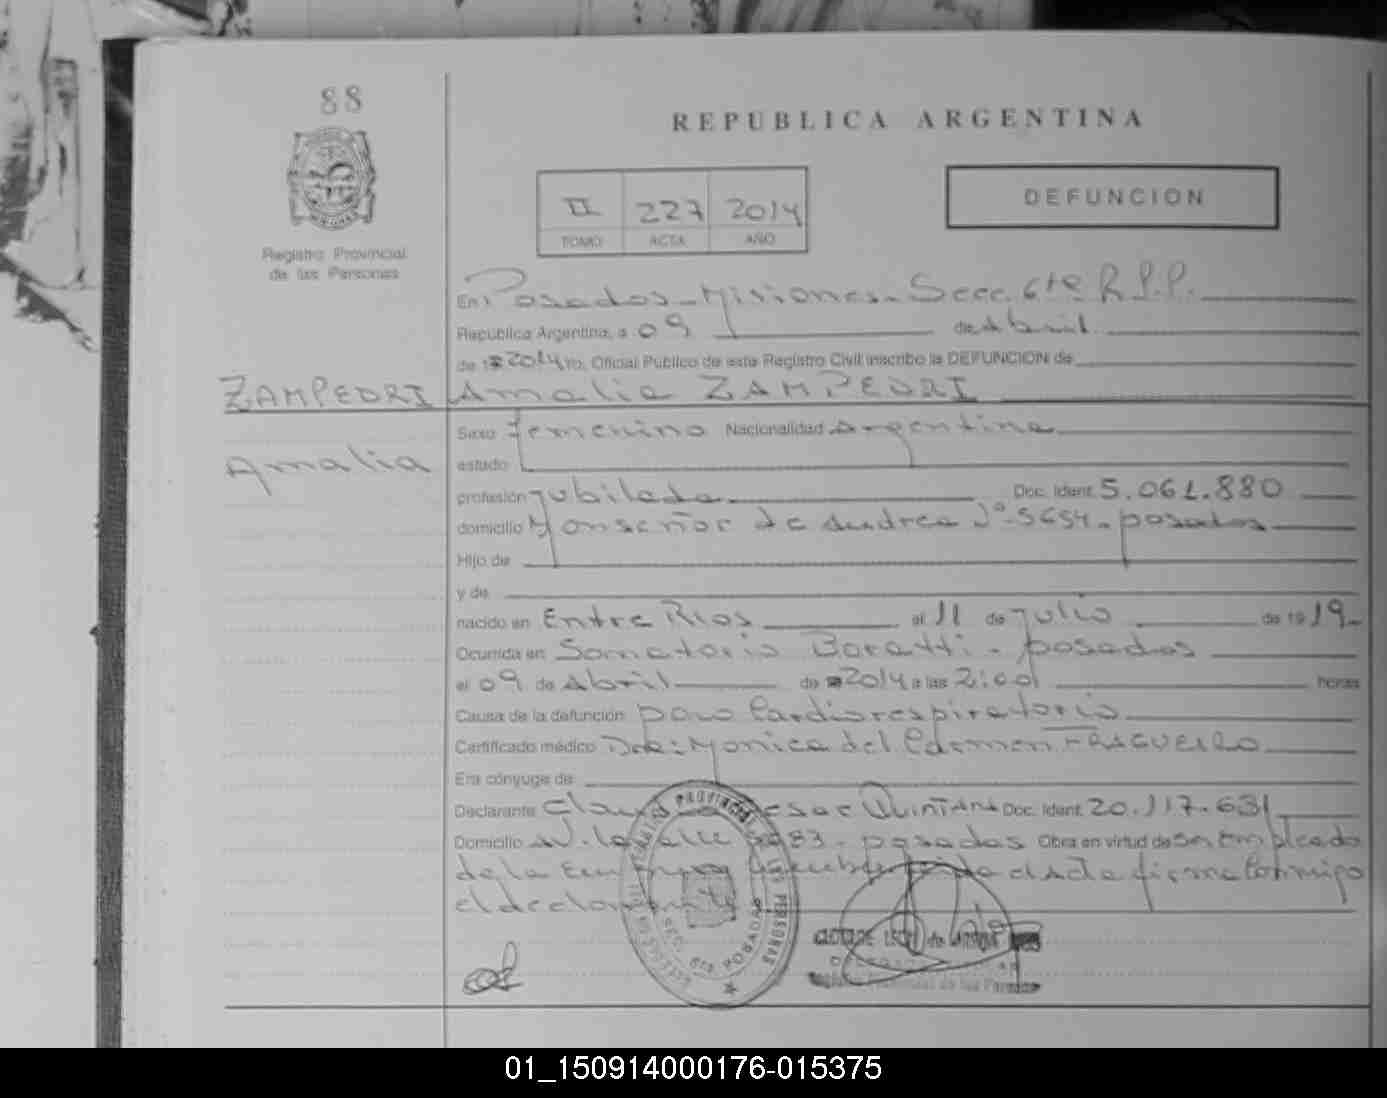 88
REPUBLICA ARGENTINA
II 227 2014
TOMO ACTA AÑO
DEFUNCION
Registro Provincial
de las Personas
En Posadas - Misiones - Secc. 6ta R.P.P.
República Argentina, a 09 de Abril
de 19 2014 Yo, Oficial Público de este Registro Civil inscribo la DEFUNCION de
ZAMPEDRI Amalia ZAMPEDRI
Sexo femenino Nacionalidad Argentina
Amalia estado
profesión jubilada Doc. Ident. 5.061.880
domicilio Monseñor de Andrea Nº 5654 - posadas
Hijo de
y de
nacido en Entre Rios el 11 de julio de 1919
Ocurrida en Sanatorio Boratti - posadas
el 09 de Abril de 2014 a las 2:00 horas
Causa de la defunción paro Cardiorespiratorio
Certificado médico Dra: Monica del Carmen FRAGUEIRO
Era cónyuge de
Declarante Cesar QUINTANA Doc. Ident. 20.117.631
Domicilio - posadas Obra en virtud de ser Empleado
de la firma Conmigo
el declarante
REGISTRO PROVINCIAL DE LAS PERSONAS
SEC. 6ta POSADAS
Registro Provincial de las Personas
01_150914000176-015375